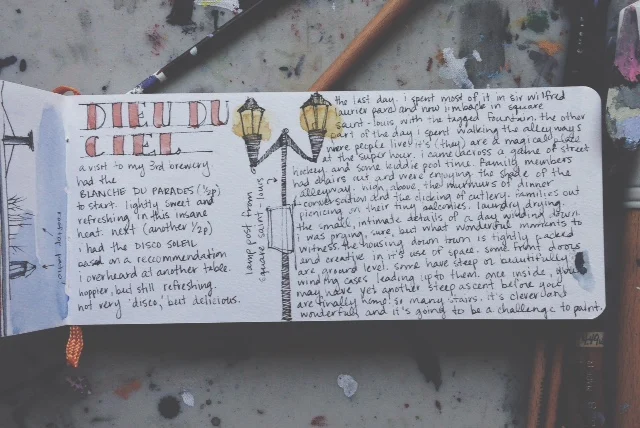 DIEU DU
CIEL
a visit to my 3rd brewery
had the
BLANCHE DU PARADES (1/2p)
to start. lightly sweet and
refreshing in this insane
heat. next (another 1/2p)
i had the DISCO SOLEIL
based on a reccommendation
i overheard at another table.
hoppier, but still refreshing.
not very 'disco,' but delicious.
lamp post from
square saint-louis
the last day. i spent most of it in sir wilfred
laurier parc and now i'm back in square
saint-louis with the tagged fountain. the other
part of the day i spent walking the alleyways
where people live. it's (they) are a magical place
at the supper hour. i came across a game of street
hockey and some kiddie pool time. family members
had chairs out and were enjoying the shade of the
alleyway. high above, the murmurs of dinner
conversation and the clicking of cutlery. families out
picnicing on their tiny balconies. laundry drying.
the small, intimate details of a day winding down.
i was prying, sure, but what wonderful moments to
witness. the housing down town is tightly packed
and creative in it's use of space. some front doors
are ground level. some have steep or beautifully
winding cases leading up to them. once inside, you
may have yet another steep ascent before you
are finally home! so many stairs. it's clever and
wonderful and it's going to be a challenge to paint.